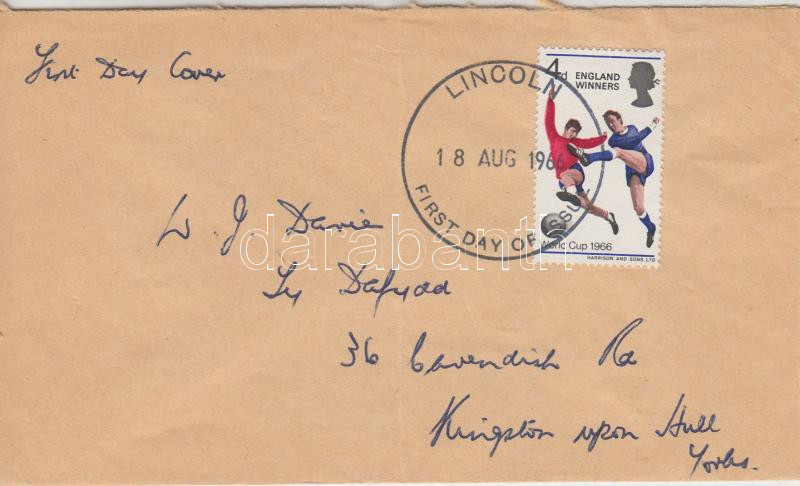 First Day Cover
LINCOLN
18 AUG 1966
FIRST DAY OF ISSUE
4d ENGLAND
WINNERS
World Cup 1966
HARRISON AND SONS LTD
W. J. Davie
Ty Dafydd
36 Cavendish Rd
Kingston upon Hull
Yorks.
darabanth